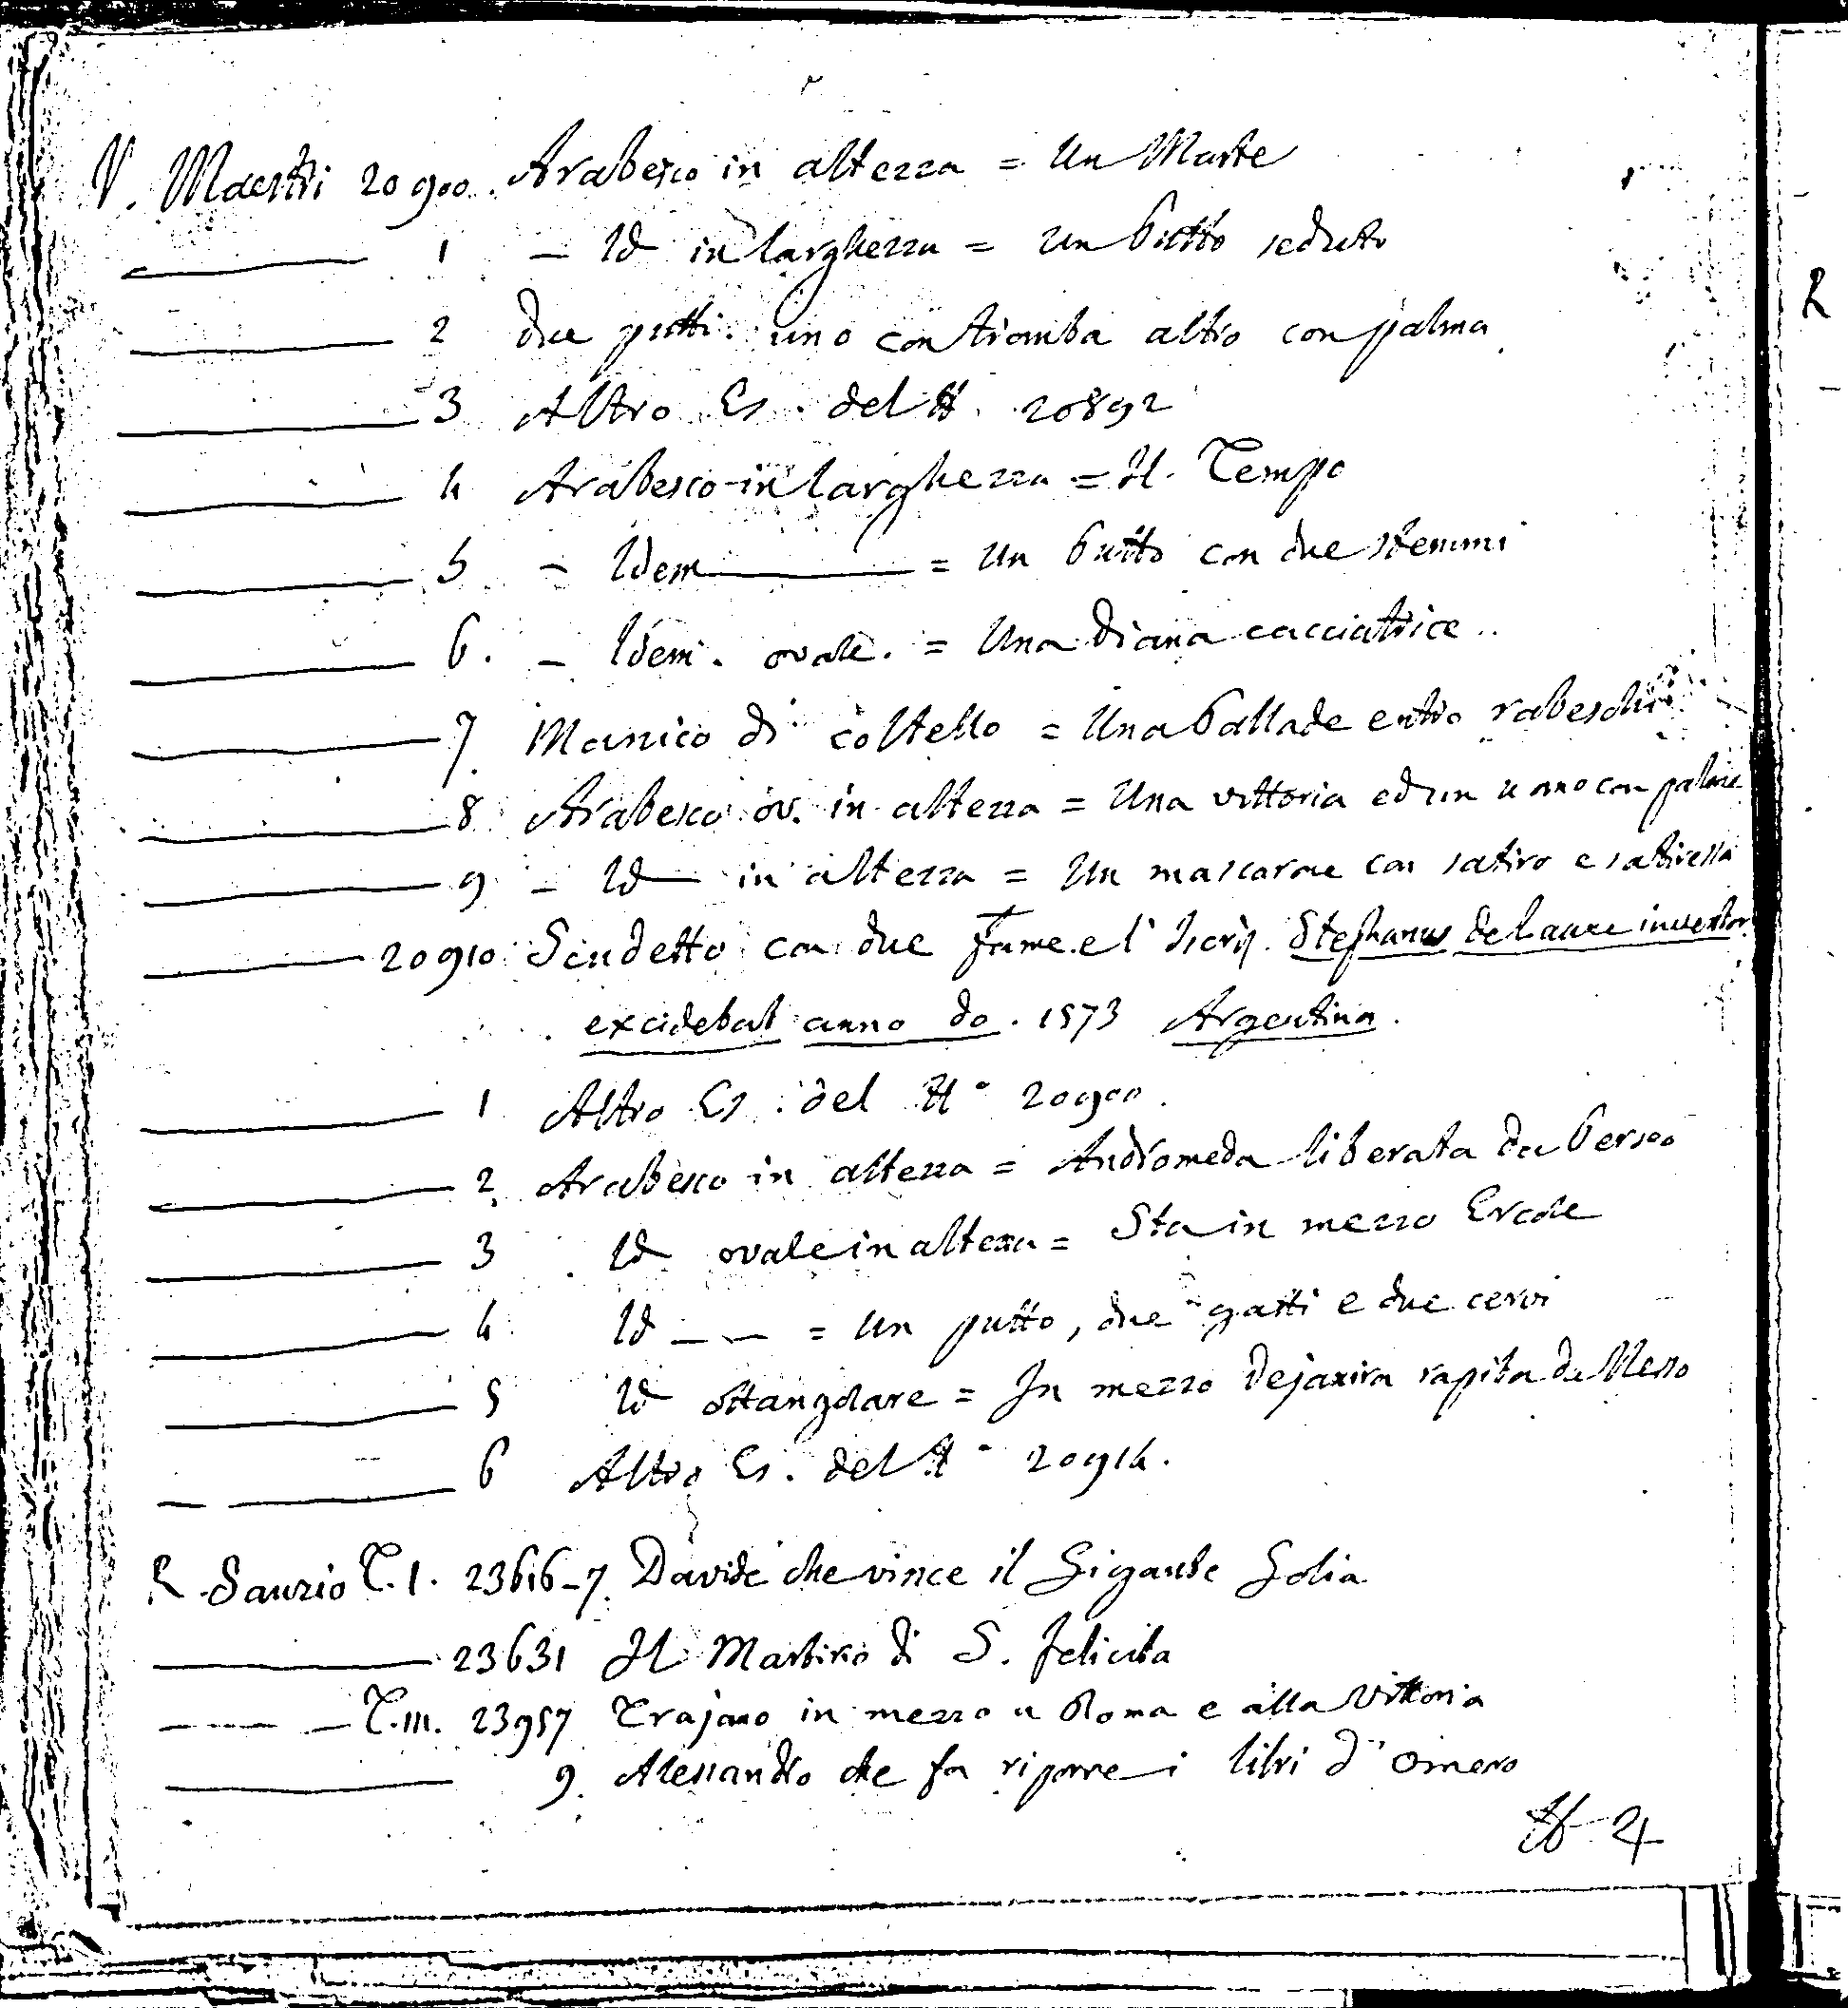 V. Maestri 20900. Arabesco in altezza = Un Marte
1 - Id in larghezza = Un Putto seduto
2 due putti. uno con tromba altro con palma
3 Altro Es. del N. 20892
4 Arabesco in larghezza = Il Tempo
5 - Idem = Un Putto con due stemmi
6. - Idem. ovale. = Una Diana cacciatrice..
7. Manico di coltello = Una Pallade entro rabeschi
8 Arabesco ov. in altezza = Una vittoria ed un uomo con palme
9 - Id in altezza = Un mascarone con satiro e satiressa
20910 Scudetto con due fame e l' Iscriz. Stephanus de laune inventor
excidebat anno do. 1573 Argentina.
1 Altro Es. del N° 20900.
2. Arabesco in altezza = Andromeda liberata da Perseo
3 Id ovale in altezza = Sta in mezzo Ercole
4 Id - - = Un putto, due gatti e due cervi
5 Id ottangolare = In mezzo Dejanira rapita da Nesso
6 Altro Es. del N° 20914.
R. Sanzio T. I. 23616-7. Davide che vince il Gigante Golia
23631 Il Martirio di S. Felicita
T. III. 23957 Trajano in mezzo a Roma e alla Vittoria
9. Alessandro che fa riporre i libri d' Omero
R